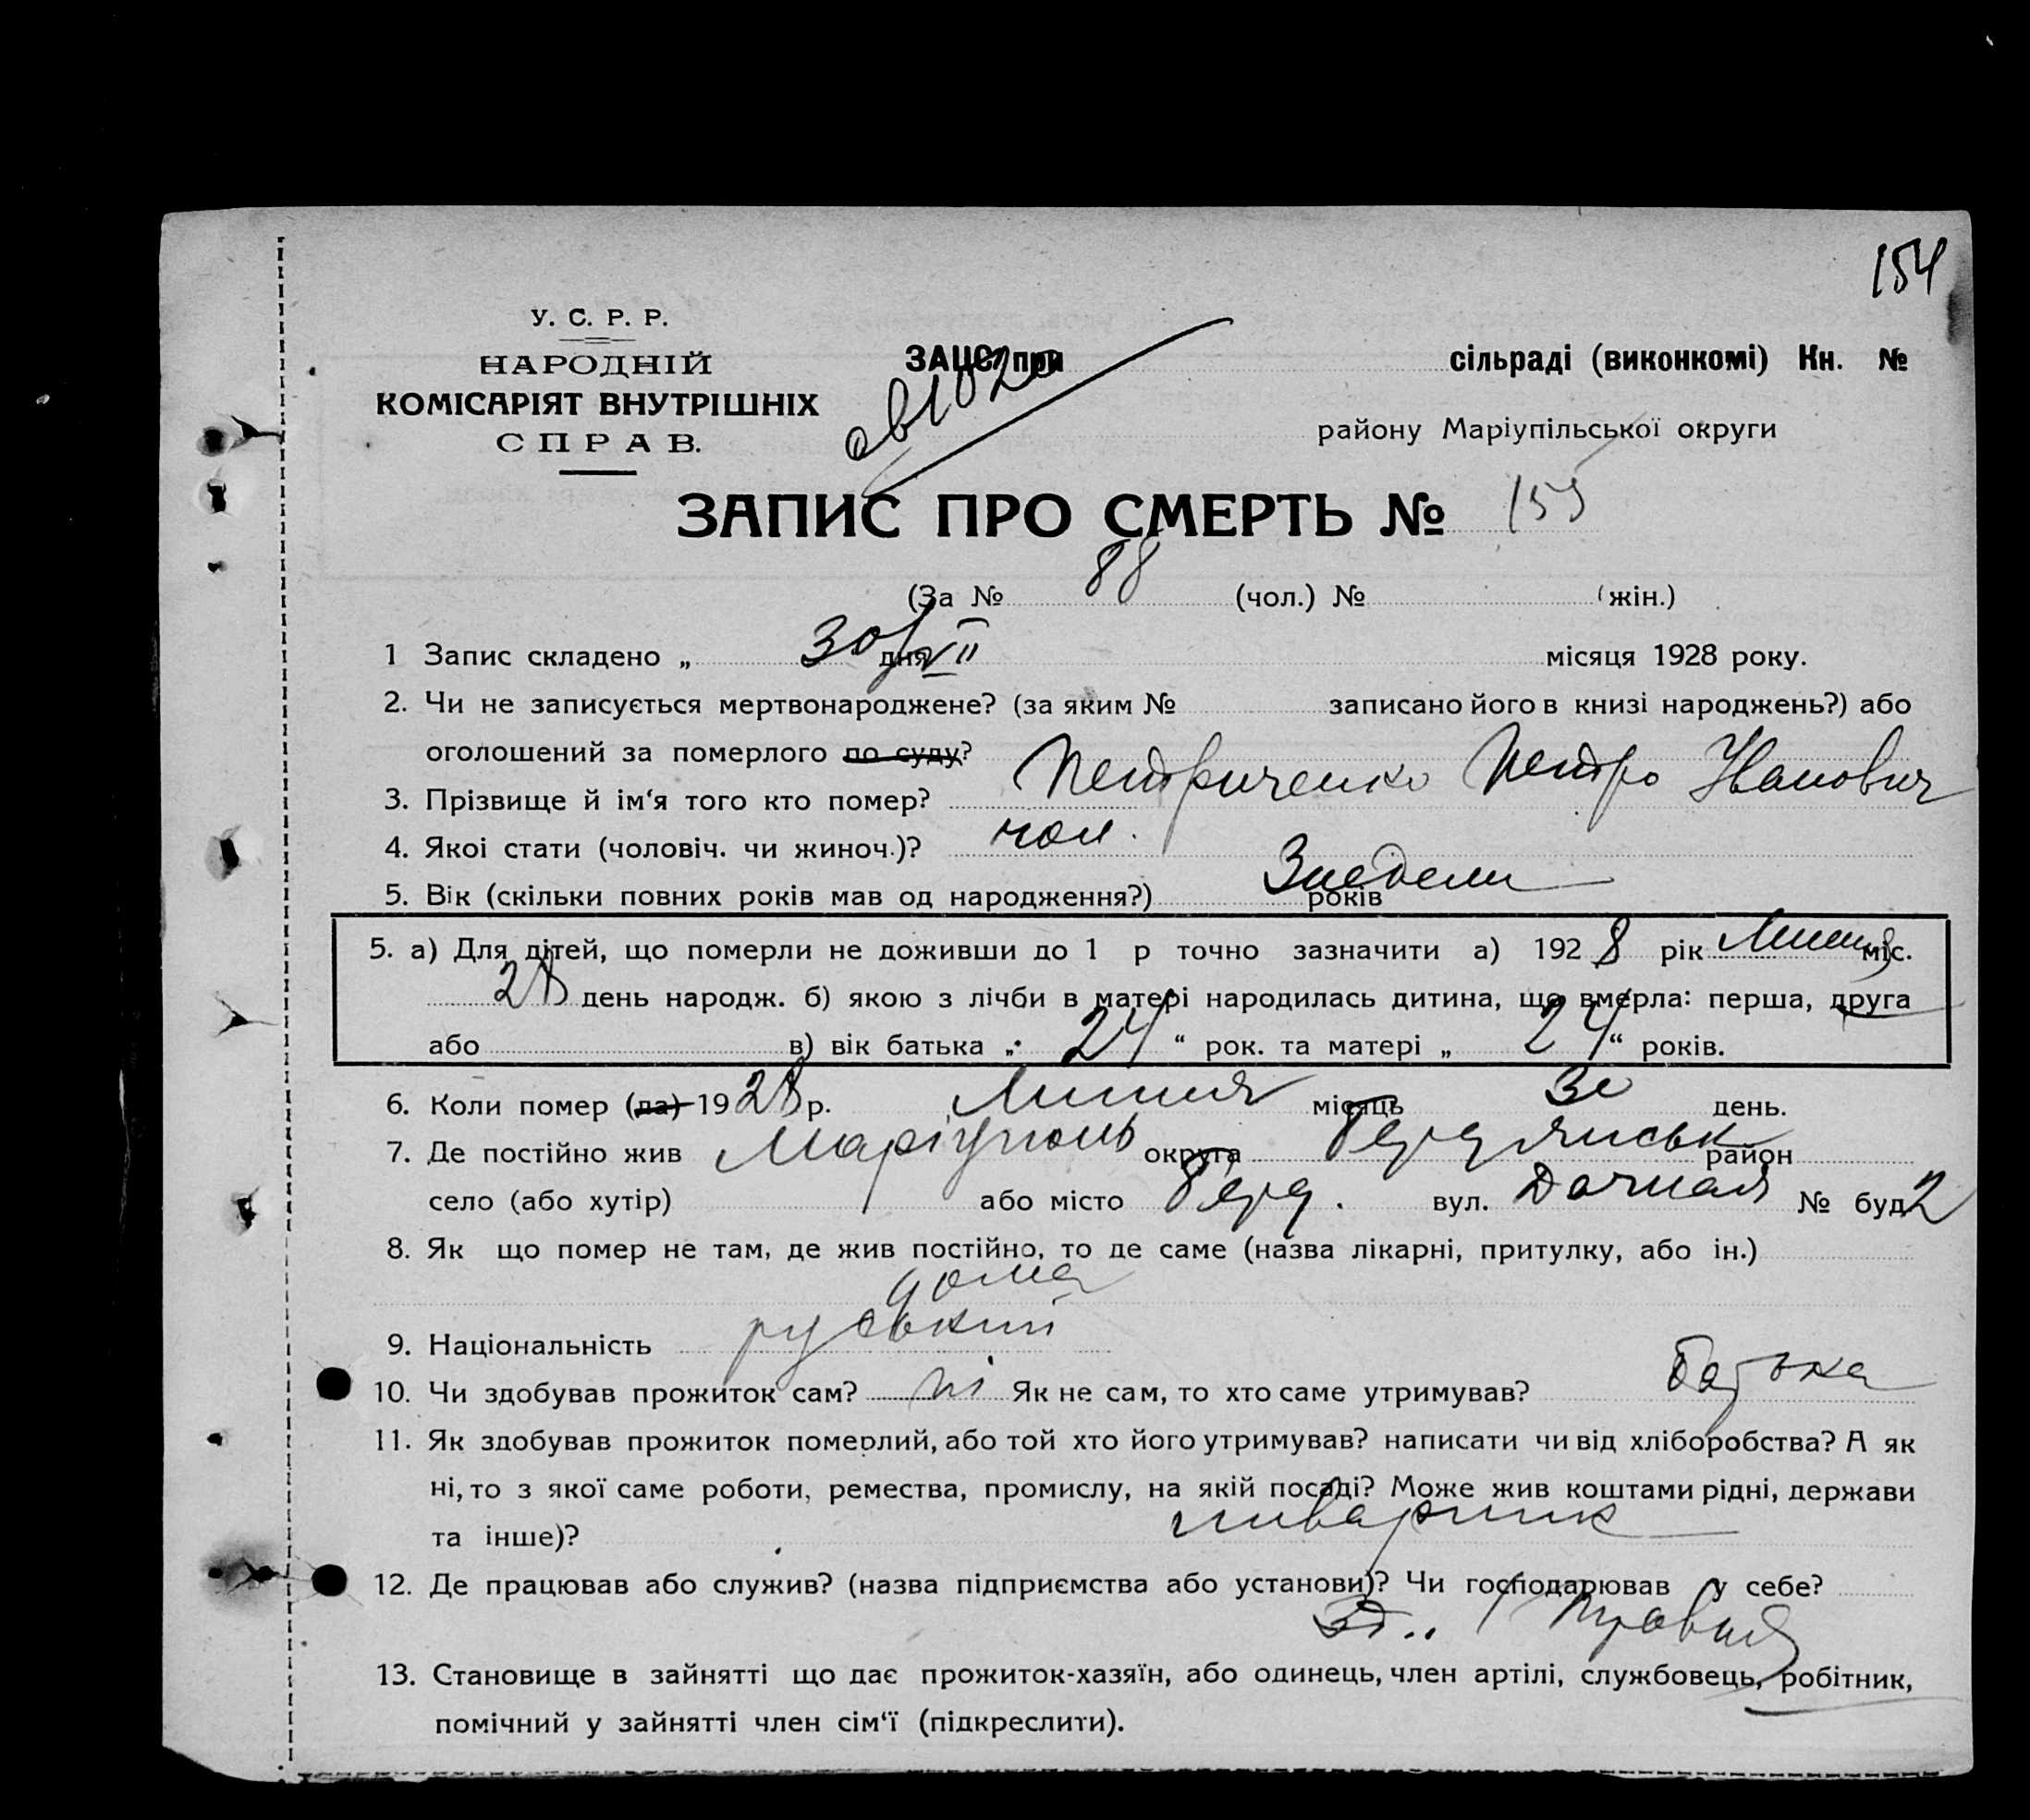 154
У. С. Р. Р.
НАРОДНІЙ
КОМІСАРІЯТ ВНУТРІШНІХ
СПРАВ.
ЗАЦС при сільраді (виконкомі) Кн. №
району Маріупільської округи
ЗАПИС ПРО СМЕРТЬ № 155
(За № 88 (чол.) № (жін.)
1 Запис складено „ 30/VII дня місяця 1928 року.
2. Чи не записується мертвонароджене? (за яким № записано його в книзі народжень?) або
оголошений за померлого по суду?
3. Прізвище й ім‘я того кто помер? Петриченко Петро Иванович
4. Якоі стати (чоловіч. чи жиноч.)? чол.
5. Вік (скільки повних років мав од народження?) 3 недели років
5. а) Для дітей, що померли не доживши до 1 р точно зазначити а) 1928 рік Липня міс.
28 день народж. б) якою з лічби в матері народилась дитина, що вмерла: перша, друга
або в) вік батька „ 24 “ рок. та матері „ 24 “ років.
6. Коли помер (ла) 1928 р. Липня місяць 30 день.
7. Де постійно жив Маріуполь округа Бердянськ район
село (або хутір) або місто Берд. вул. Дачная № буд 2
8. Як що помер не там, де жив постійно, то де саме (назва лікарні, притулку, або ін.)
дома
9. Національність руський
10. Чи здобував прожиток сам? ні Як не сам, то хто саме утримував? батька
11. Як здобував прожиток померлий, або той хто його утримував? написати чи від хліборобства? А як
ні, то з якої саме роботи, ремества, промислу, на якій посаді? Може жив коштами рідні, держави
та інше)?
12. Де працював або служив? (назва підприємства або установи)? Чи господарював у себе?
13. Становище в зайнятті що дає прожиток-хазяїн, або одинець, член артілі, службовець, робітник,
помічний у зайнятті член сім‘ї (підкреслити).